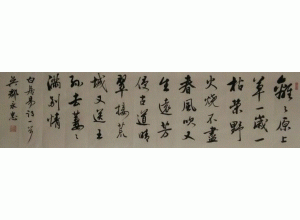 離々原上
草一歲一
枯榮野
火燒不盡
春風吹又
生遠芳
侵古道晴
翠接荒
城又送王
孫去萋々
滿別情
白居易詩一首